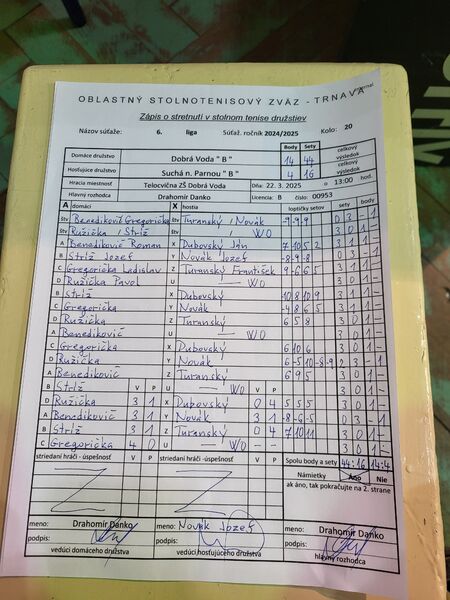 OBLASTNÝ STOLNOTENISOVÝ ZVÄZ - TRNAVA
Zápis o stretnutí v stolnom tenise družstiev
Názov súťaže: 6. liga Súťaž. ročník 2024/2025 Kolo: 20
Body Sety celkový
Domáce družstvo Dobrá Voda " B " 14 44 výsledok
Hosťujúce družstvo Suchá n. Parnou " B " 4 16 celkový výsledok
Hracia miestnosť Telocvičňa ZŠ Dobrá Voda Dňa: 22. 3. 2025 o 13:00 hod.
Hlavný rozhodca Drahomír Danko Licencia: B číslo: 00953
A domáci X hostia loptičky setov sety body
štv Benedikovič Gregorička štv Turanský / Novák -9 -9 -9 0 3 - 1
štv Ružička / Strîž štv — WO 3 0 1 -
A Benedikovič Roman X Dubovský Ján 7 10 5 2 3 1 1 -
B Strîž Jozef Y Novák Jozef -8 -9 -8 0 3 - 1
C Gregorička Ladislav Z Turanský František 9 -6 6 5 3 1 1 -
D Ružička Pavol U — WO 3 0 1 -
B Strîž X Dubovský 10 8 10 9 3 1 1 -
C Gregorička Y Novák -4 8 6 5 3 1 1 -
D Ružička Z Turanský 6 5 8 3 0 1 -
A Benedikovič U — WO 3 0 1 -
C Gregorička X Dubovský 6 10 6 3 0 1 -
D Ružička Y Novák 6 -5 10 -8 -9 2 3 - 1
A Benedikovič Z Turanský 6 9 5 3 0 1 -
B Strîž V P U — WO V P 3 0 1 -
D Ružička 3 1 X Dubovský 0 4 5 5 5 3 0 1 -
A Benedikovič 3 1 Y Novák 3 1 -8 -6 -5 0 3 - 1
B Strîž 3 1 Z Turanský 0 4 7 10 11 3 0 1 -
C Gregorička 4 0 U — WO - - 3 0 1 -
striedaní hráči - úspešnosť V P striedaní hráči - úspešnosť V P Spolu body a sety 44:16 14:4
Námietky Áno Nie
ak áno, tak pokračujte na 2. strane
meno: Drahomír Danko meno: Novák Jozef meno: Drahomír Danko
podpis: podpis: podpis:
vedúci domáceho družstva vedúci hosťujúceho družstva hlavný rozhodca